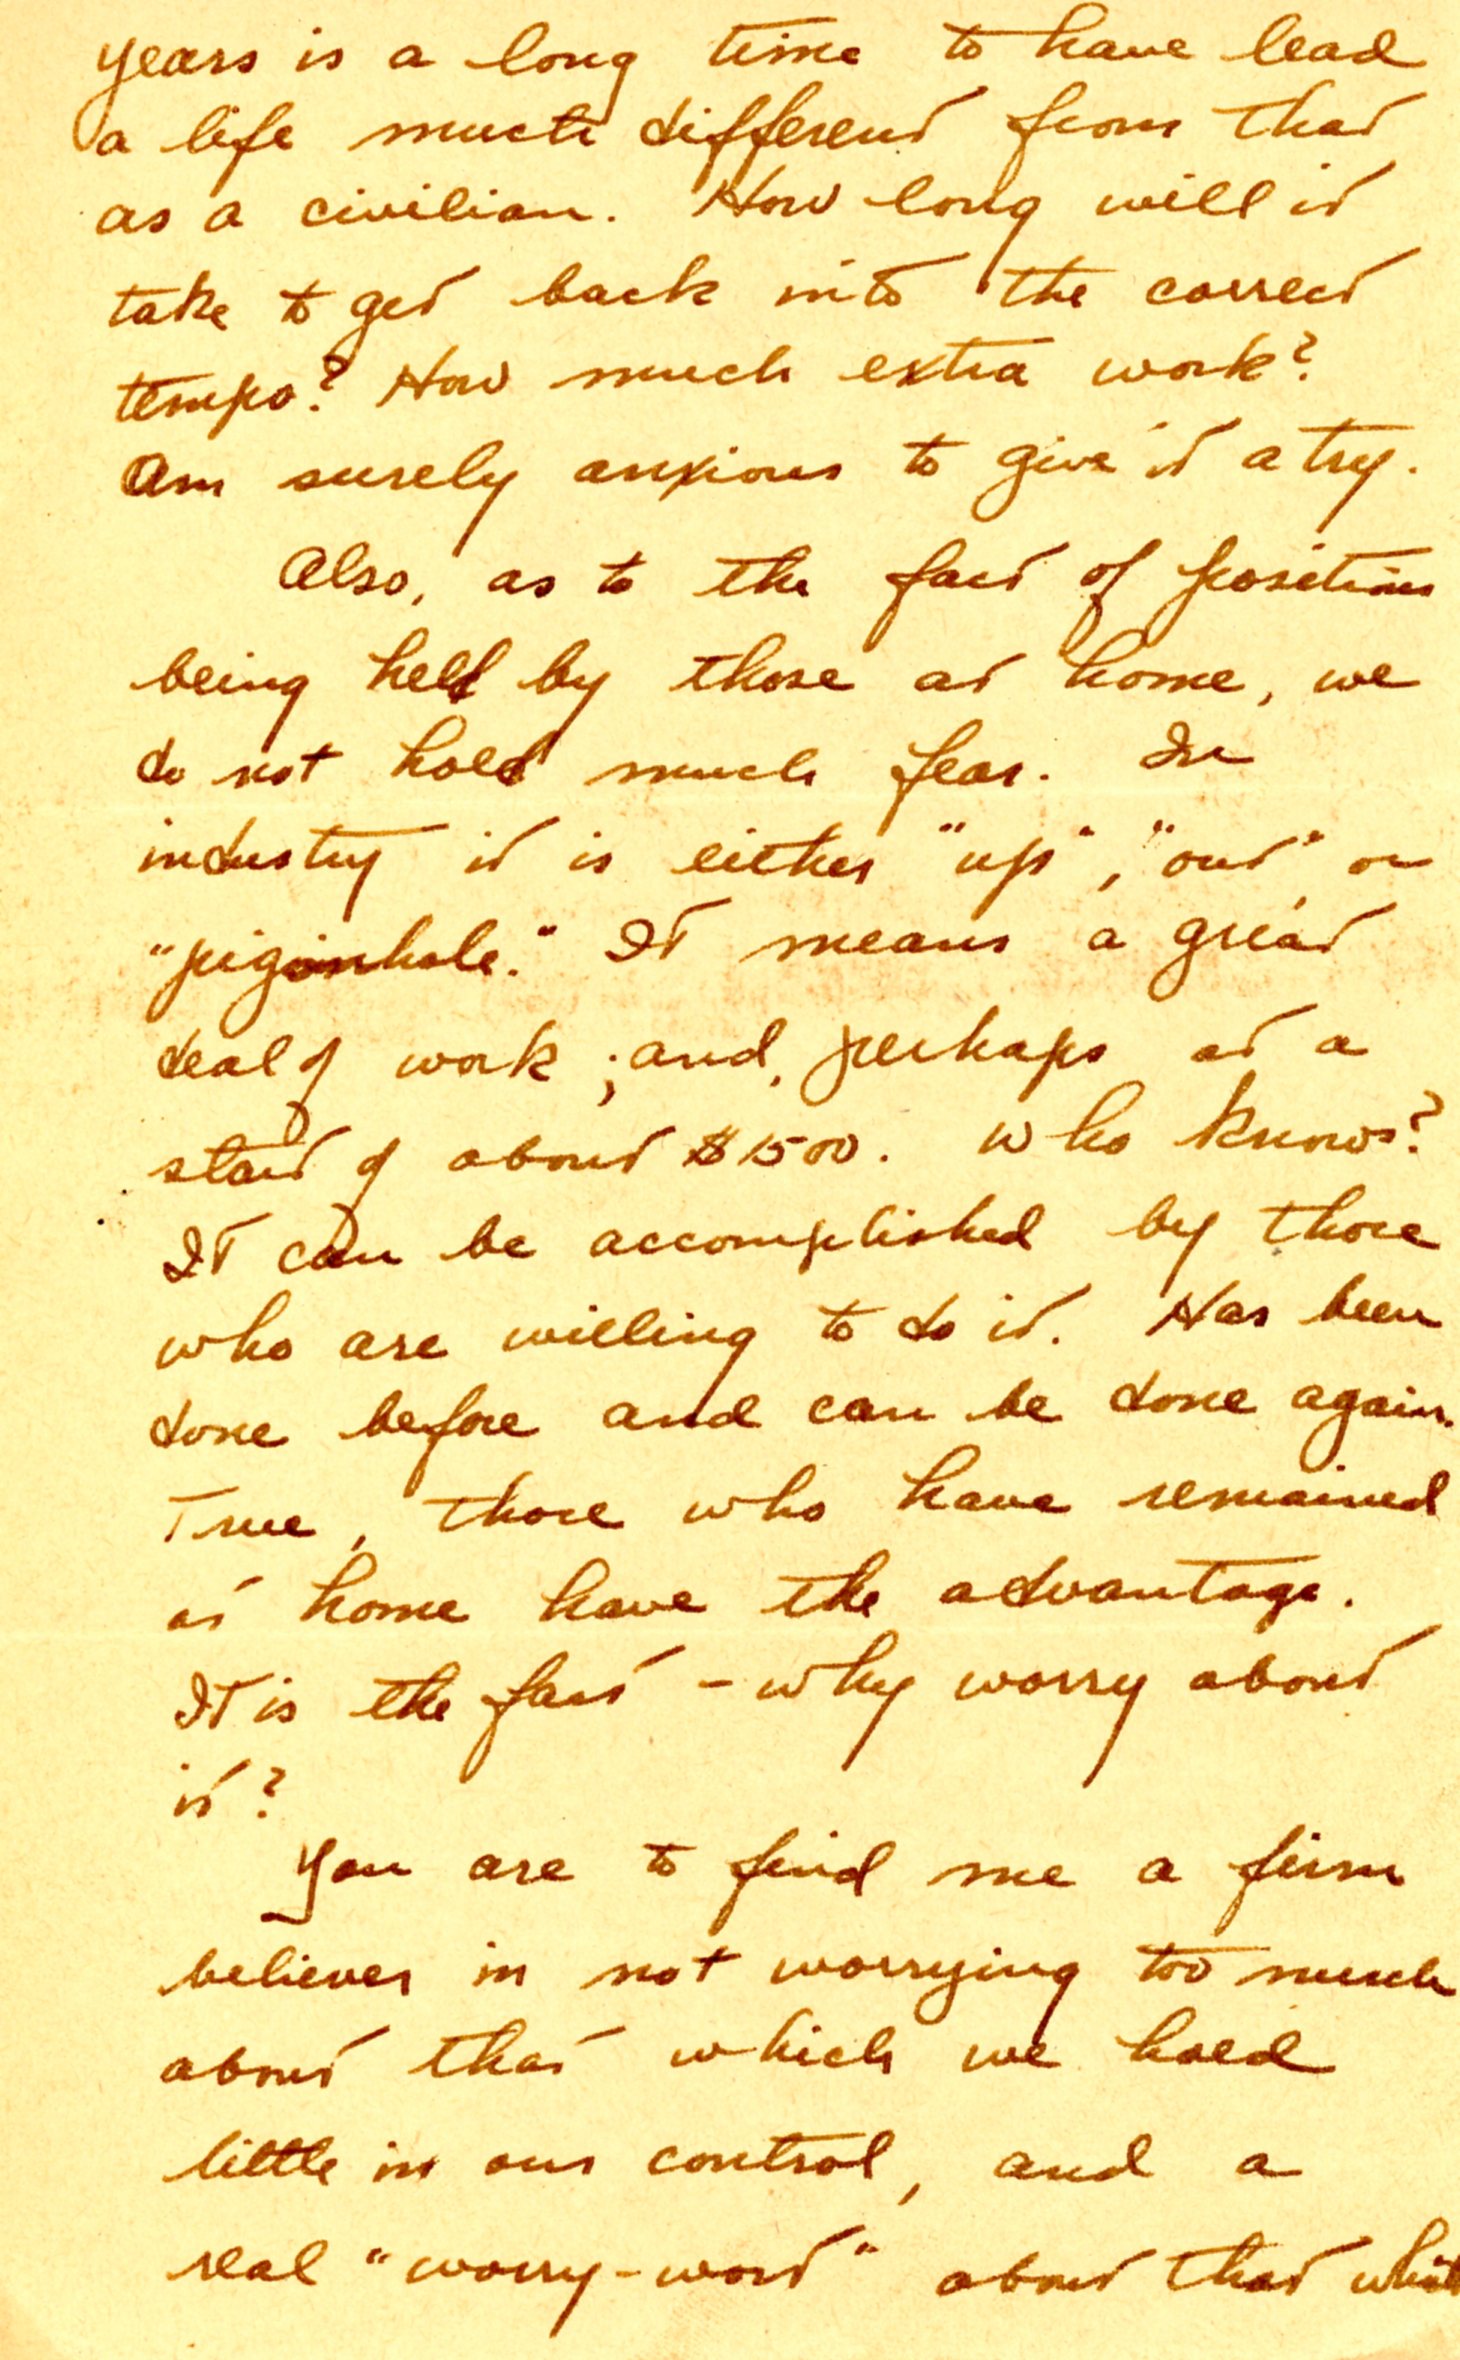 years is a long time to have lead
a life much different from that
as a civilian. How long will it
take to get back into the correct
tempo? How much extra work?
Am surely anxious to give it a try.
Also, as to the fact of positions
being held by those at home, we
do not hold much fear. In
industry it is either "up", "out" or
"pigoinhole." It means a great
deal of work; and, perhaps at a
start of about $1500. Who knows?
It can be accomplished by those
who are willing to do it. Has been
done before and can be done again.
True, those who have remained
at home have the advantage.
It is the fact - why worry about
it?
You are to find me a firm
believer in not worrying too much
about that which we hold
little in our control, and a
real "worry-wort" about that which